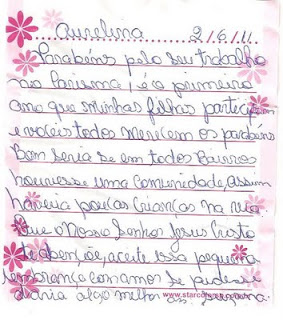 Aurelina 2/6/11
Parabéns pelo seu trabalho
no Carisma, é a primeiro
ano que minhas filhas particip
e vocêis todos merecem os parabéns
Bom seria se em todos Bairros
houvesse uma comunidade, assim
haveria poucas crianças na rua.
Que o Nosso Senhor Jesus Cristo
te abençõe, aceite essa pequena
lembrança com amor se pudesse
daria algo melhor